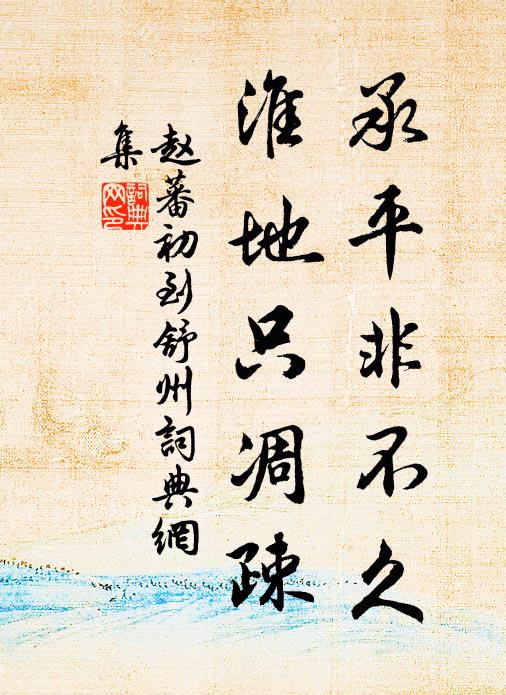 承平非不久
淮地只凋疎
赵蕃初到舒州詞典網
集
詞典
网印